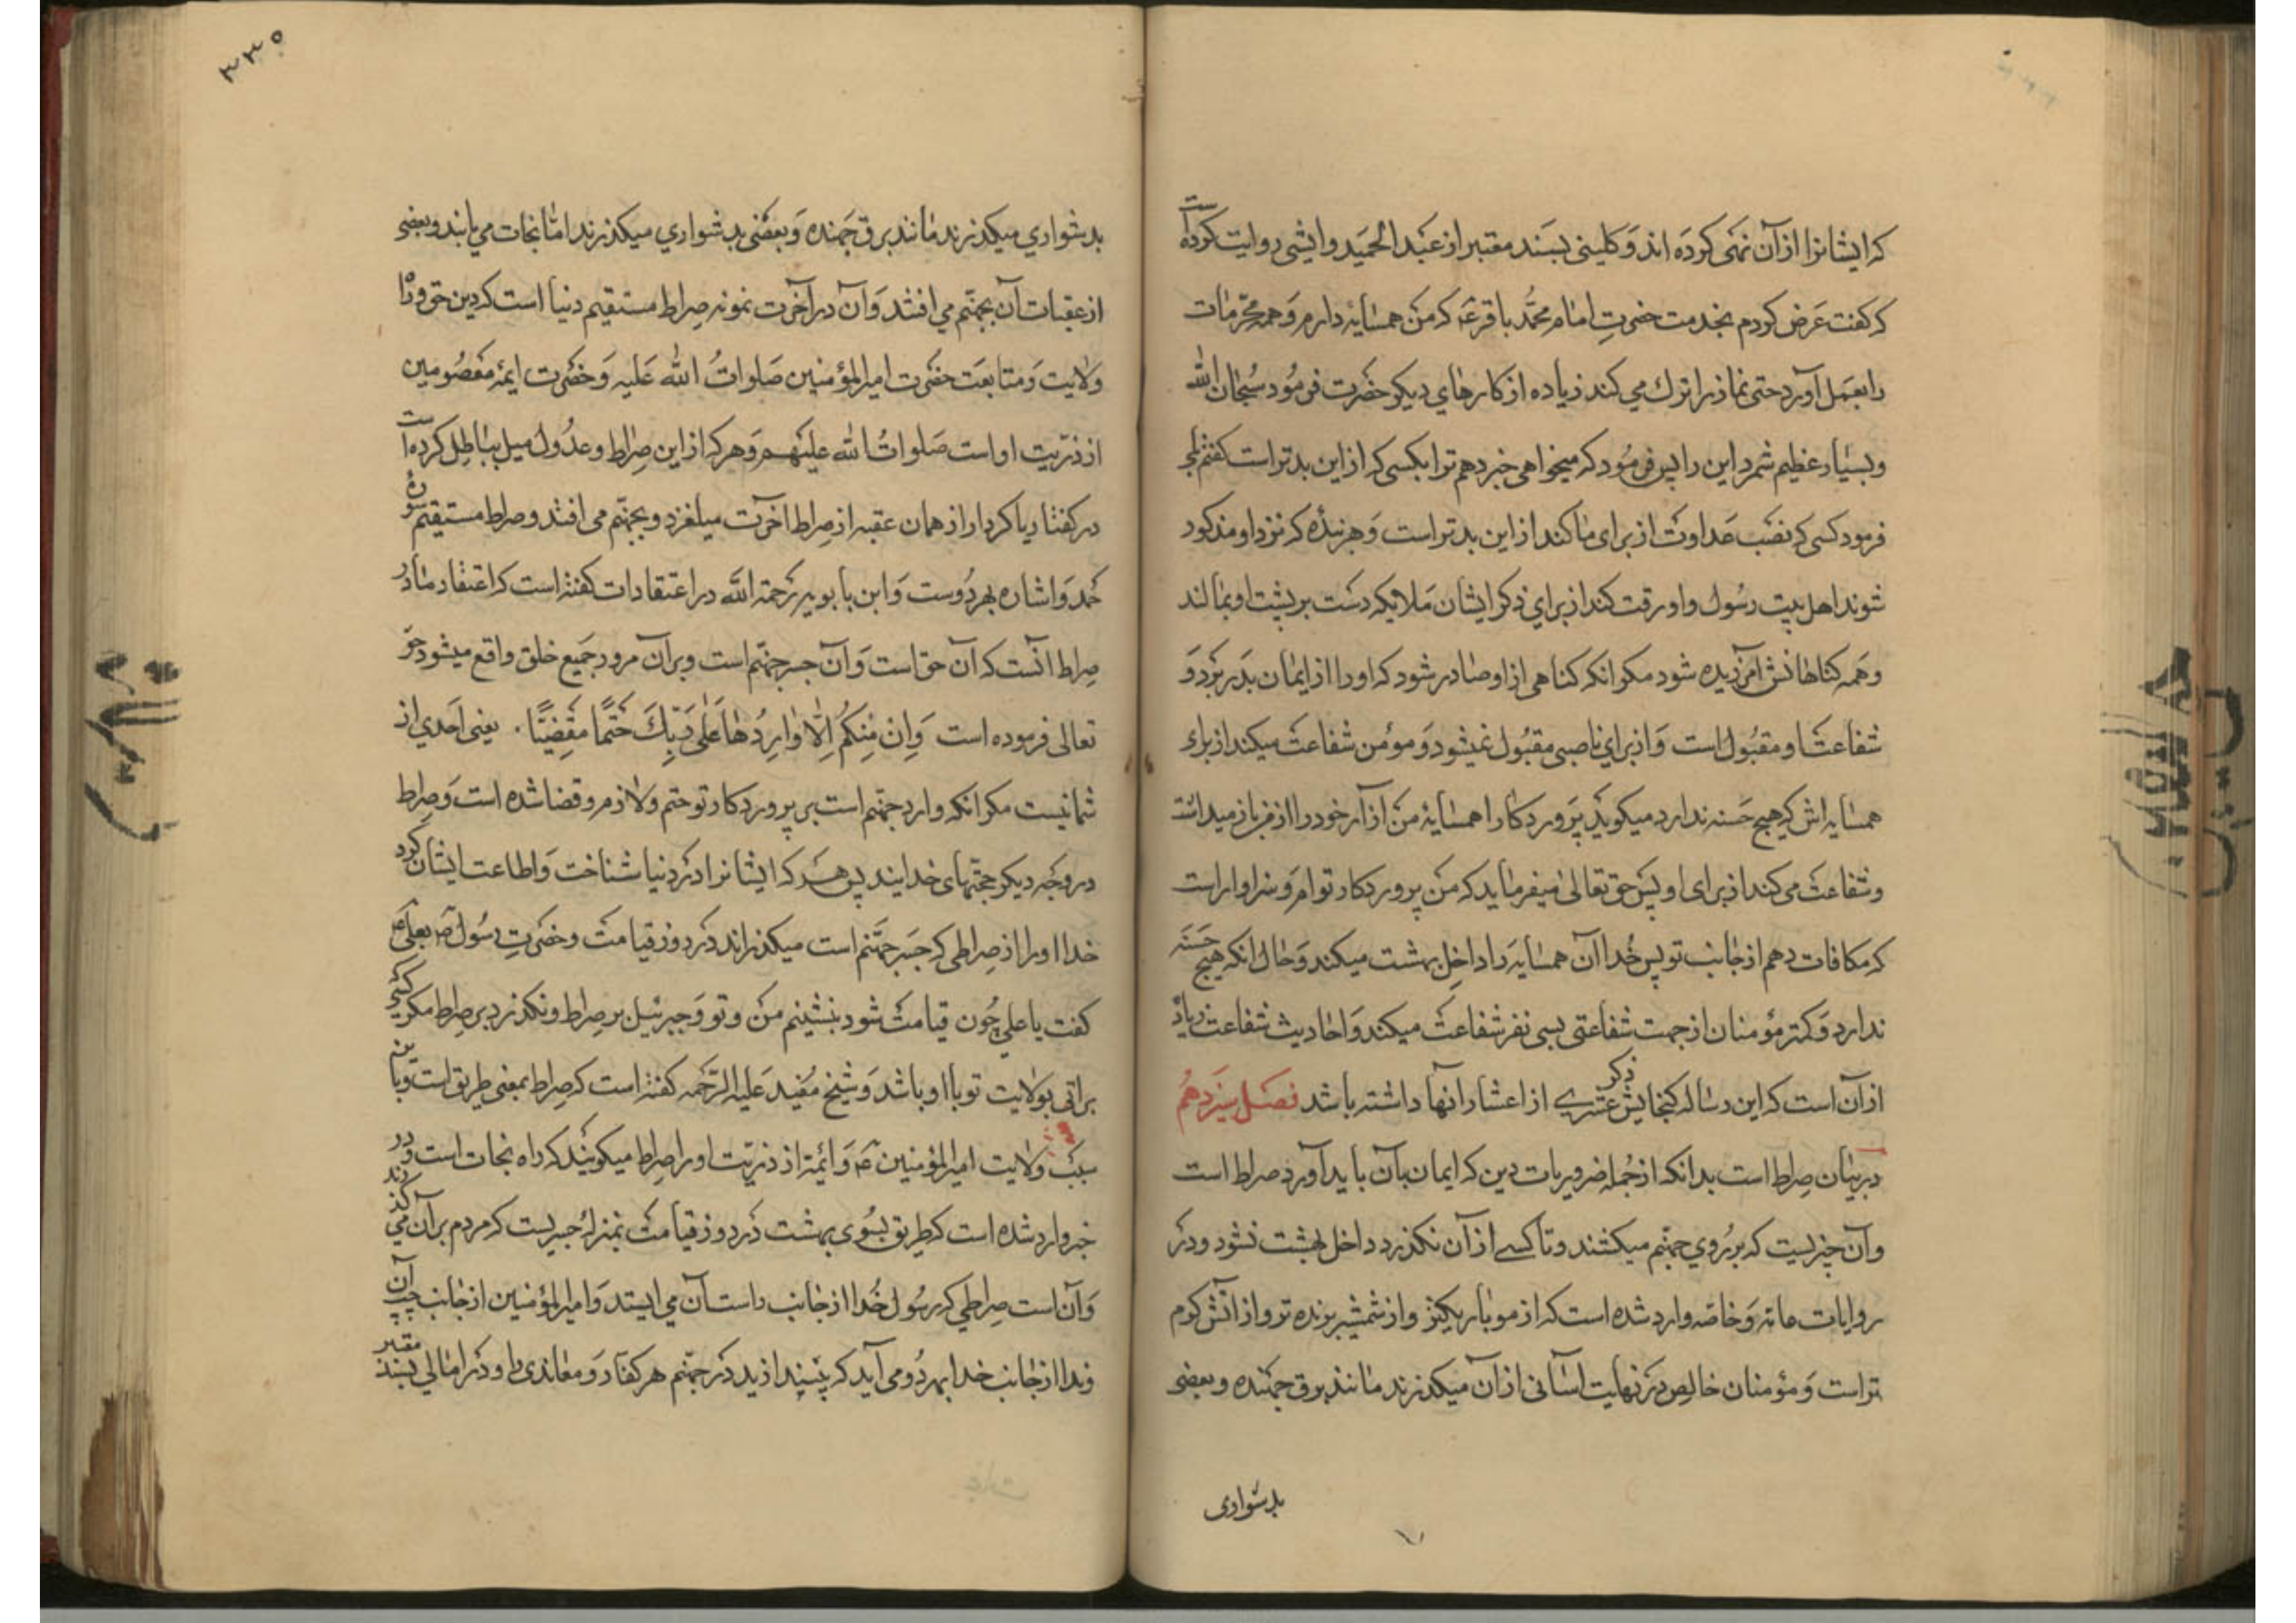 که ایشانرا ازان نهی کرده اند و کلینی بسند معتبر از عبد الحمید وابشی روایت کرده است
که گفت عرض کردم بخدمت حضرت امام محمد باقر ع که من همسایه دارم و همه محرمات
را بعمل آورد حتی نماز را ترك می کند زیاده از کارهای دیکر حضرت فرمود سبحان الله
و بسیار عظیم شمرد این را پس فرمود که میخواهی خبر دهم ترا بکسی که از این بدتر است گفتم بلی
فرمود کسی که نصب عداوت از برای ما کند از این بدتر است و هر بنده که نزد او مذکور
شوند اهل بیت رسول و او رقت کند از برای ذکر ایشان ملایکه دست بر پشت او بمالند
و همه کناهانش آمرزیده شود مکر انکه کناهی از او صادر شود که او را از ایمان بدر برد و
شفاعت او مقبول است و از برای ناصبی مقبول نمیشود و مؤمن شفاعت میکند از برای
همسایه اش که هیچ حسنه ندارد میکوید پروردکارا همسایۀ من آزار خود را از من باز میداشت
و شفاعت می کند از برای او پس حق تعالی میفرماید که من پروردکار توام و سزاوار است
که مکافات دهم از جانب تو پس خدا آن همسایه را داخل بهشت میکند و حال انکه هیچ حسنه
ندارد و کمتر مؤمنان از جهت شفاعتی بسی نفر شفاعت میکند و احادیث شفاعت زیاده
از آن است که این رساله کنجایش ذکر عشری از اعشار انها داشته باشد فصل سیزدهم
در بیان صراط است بدانکه از جمله ضروریات دین که ایمان بآن باید آورد صراط است
و آن چیزیست که بر روی جهنم میکشند و تا کسی از آن نکذرد داخل بهشت نشود و در
روایات عامه و خاصه وارد شده است که از مو باریکتر و از شمشیر برنده تر و از اتش کرم
تر است و مؤمنان خالص در نهایت اسانی از آن میکذرند مانند برق جهنده و بعضی
بدشواری
۲۳۵
بدشواری میکذرند مانند برق جهنده و بعضی بدشواری میکذرند اما نجات می یابند و بعضی
از عقبات آن بجهنم می افتند و آن در آخرت نمونه صراط مستقیم دنیا است که دین حق و راه
ولایت و متابعت حضرت امیر المؤمنین صلوات الله علیه و حضرت ایمه معصومین
از ذریت او است صلوات الله علیهم و هر که از این صراط و عدول میل بباطل کرده است
در کفتار یا کردار از همان عقبه از صراط اخرت میلغزد و بجهنم می افتد و صراط مستقیم سوره
حمد و اشاره بهر دوست و ابن بابویه رحمة الله در اعتقادات گفته است که اعتقاد ما در
صراط انست که آن حق است و آن جسر جهنم است و بر آن مرور جمیع خلق واقع میشود حق
تعالی فرموده است وَاِن مِنكُم اِلّا وارِدُها عَلى رَبِّكَ حَتمًا مَقضِيًّا . یعنی احدی از
شما نیست مکر انکه وارد جهنم است بر پروردکار تو حتم و لازم و قضا شده است و صراط
در وجه دیکر حجتهای خدایند پس هر که ایشانرا در دنیا شناخت و اطاعت ایشان کرد
خدا او را از صراطی که جسر جهنم است میکذراند در روز قیامت و حضرت رسول ص بعلی ع
کفت یا علی چون قیامت شود بنشینم من و تو و جبرئیل بر صراط و نکذرد بر صراط مکر کسی که
براتی بولایت تو با او باشد و شیخ مفید علیه الرحمه گفته است که صراط بمعنی طریق است و باین
سبب ولایت امیر المؤمنین ع و ائمه از ذریت او را صراط میکویند که راه نجات است و در
خبر وارد شده است که طریق بسوی بهشت در روز قیامت بمنزلۀ جسریست که مردم بر آن می کذرند
و آن است صراطی که رسول خدا از جانب راست آن می ایستد و امیر المؤمنین از جانب چپ آن
و ندا از جانب خدا بهر دو می آید که بیندازید در جهنم هر کفار و معاندی را و در امالی بسند معتبر